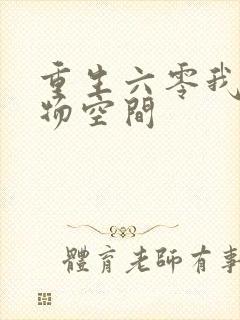 重生六零我
物空間
體育老師有事